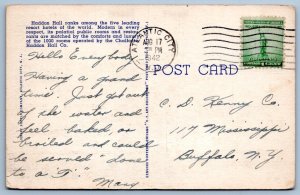 Haddon Hall ranks among the five leading
resort hotels of the world. Modern in every
respect, its palatial public rooms and
rants are matched by the comfort and
of the 1000 rooms operated by the
Haddon Hall Co.
ATLANTIC CITY
AUG 17
PM
1942
POST CARD
Hello Everybody
Having a good
time. Just got out
of the water and
feel baked, or
broiled and could
be served "done
to a T."
Mary
C. D. Kenny Co.
117 Mississippi
Buffalo, N.Y